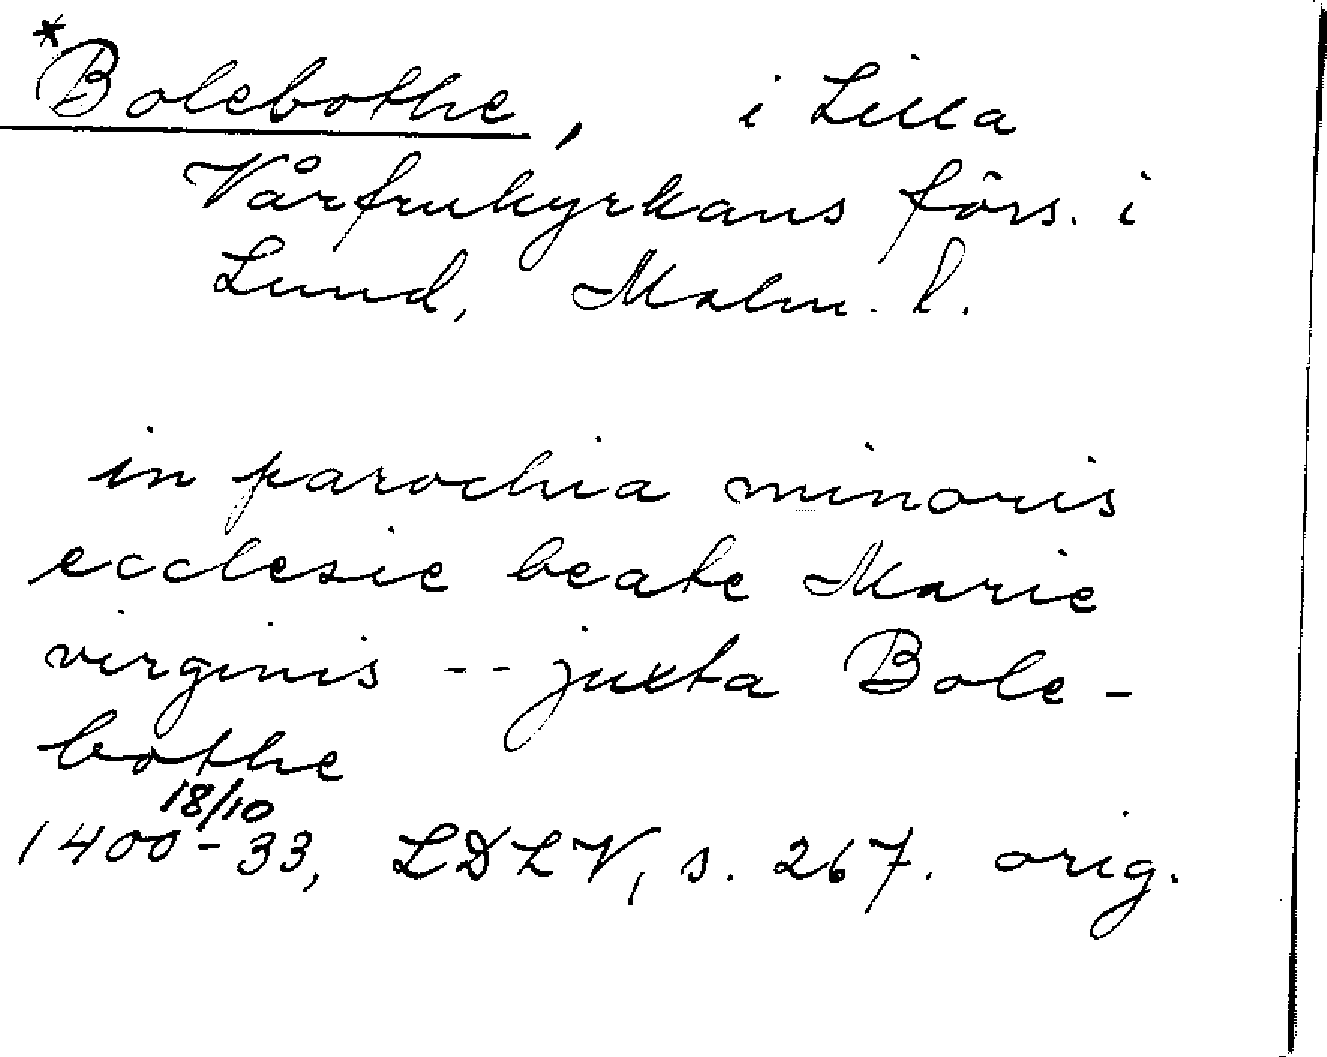 *Bolebothe, i Lilla
Vårfrukyrkans förs. i
Lund, Malm. l.
in parochia minoris
ecclesie beate Marie
virginis -- juxta Bole-
bothe
18/10
1400-33, LDLV, s. 267. orig.